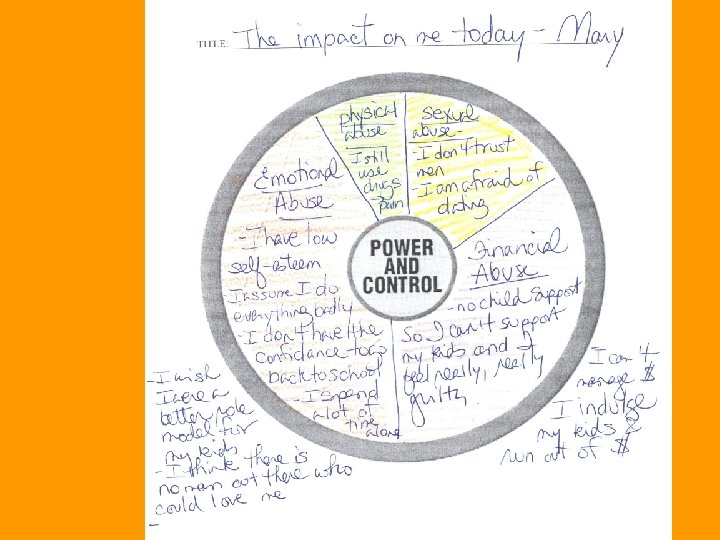 TITLE: The impact on me today - Mary
physical
abuse
I still
use
drugs
pain
sexual
abuse-
-I don't trust
men
-I am afraid of
dating
Emotional
Abuse
-I have low
self-esteem
-I assume I do
everything badly
-I don't have the
confidance to go
back to school
- I spend
a lot of
time
alone
POWER
AND
CONTROL
Financial
Abuse
- no child support
so I can't support
my kids and I
feel really, really
guilty.
-I wish
I were a
better role
model for
my kids
-I think there is
no man out there who
could love me
-
I can't
manage $
I indulge
my kids &
run out of $